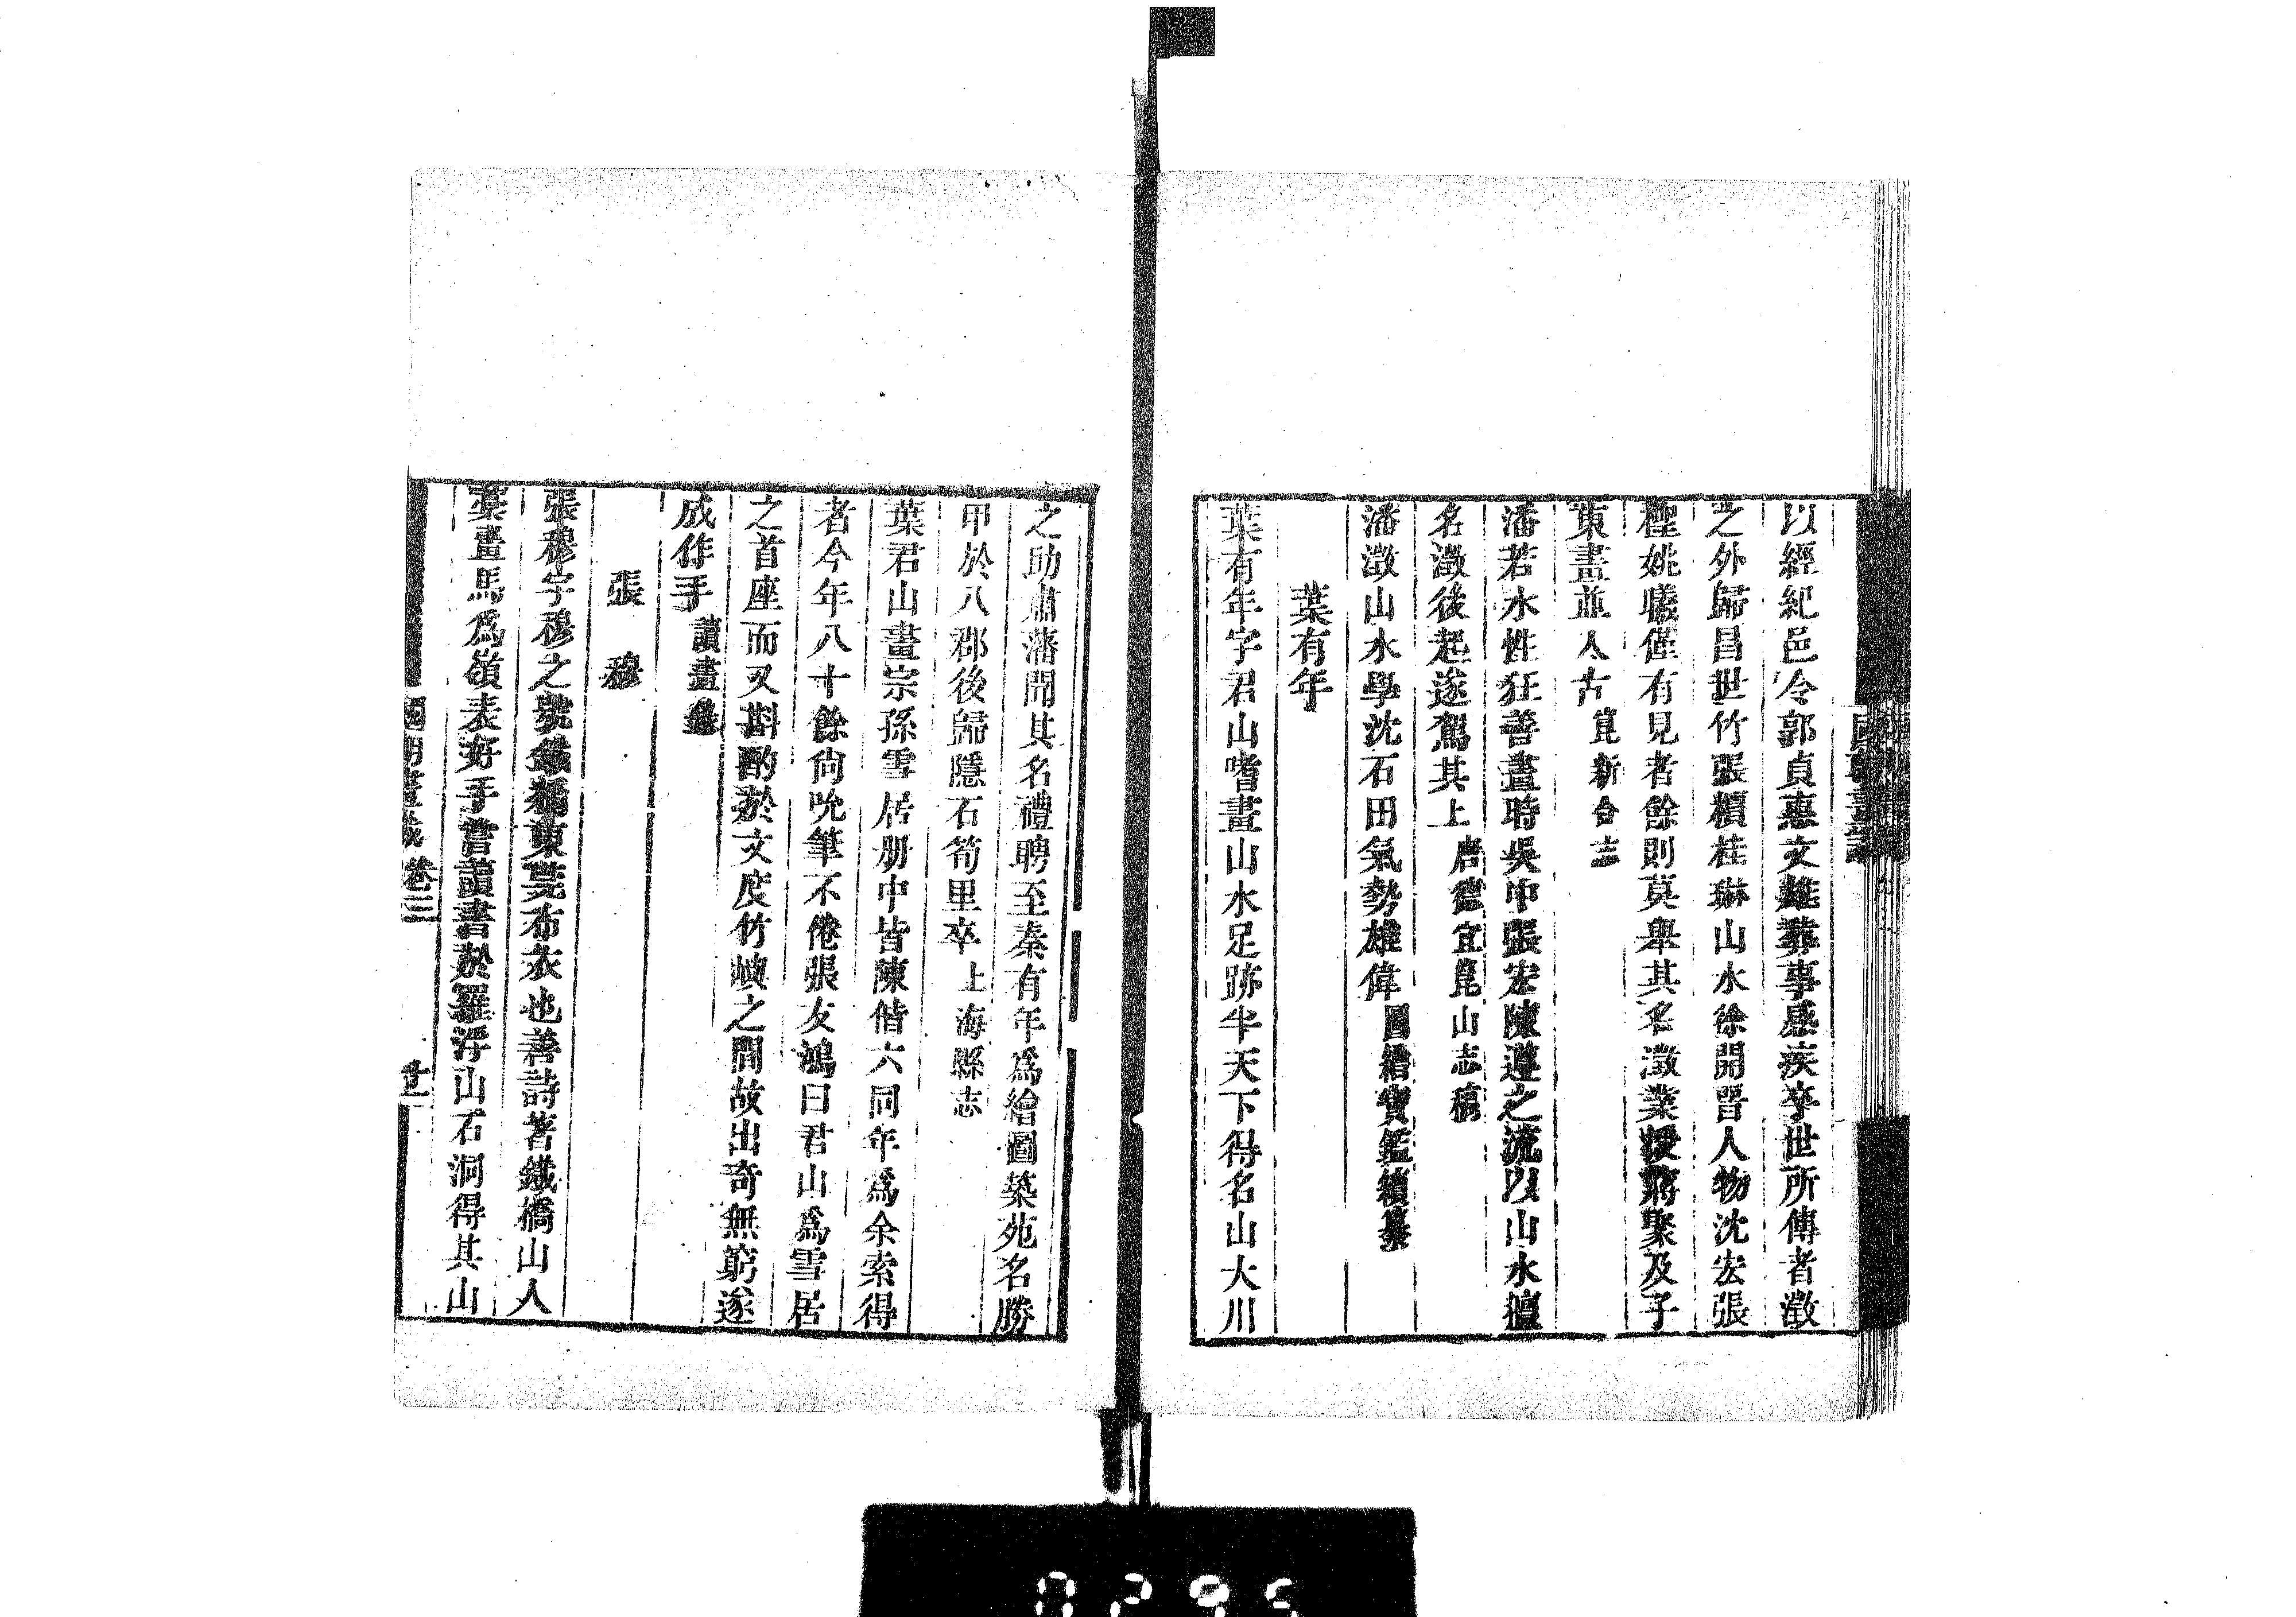 以經紀邑令郭貞惠文雜葬事感疾卒世所傳者澂
之外歸昌世竹張槓桂琳山水徐開晋人物沈宏張
極姚曦僅有見者餘則莫舉其名澂業授蔣聚及子
東畫並入古崑新合志
潘若水性狂善畫時吳中張宏陳遵之流以山水擅
名澂後起遂駕其上唐德宜崑山志稿
潘澂山水學沈石田氣勢雄偉圖繪寶鑑續纂
葉有年
葉有年字君山嗜畫山水足跡半天下得名山大川
之助肅藩聞其名禮聘至秦有年為繪圖築苑名勝
甲於八郡後歸隱石筍里卒上海縣志
葉君山畫宗孫雪居册中皆陳偕六同年為余索得
者今年八十餘尙吮筆不倦張友鴻曰君山為雪居
之首座而又斟酌於文度竹嶼之間故出奇無窮遂
成作手讀畫錄
張穆
張穆字穆之號鐵橋東莞布衣也善詩著鐵橋山人
槀畫馬為嶺表好手嘗讀書於羅浮山石洞得其山
國朝畫識 卷三 廿一